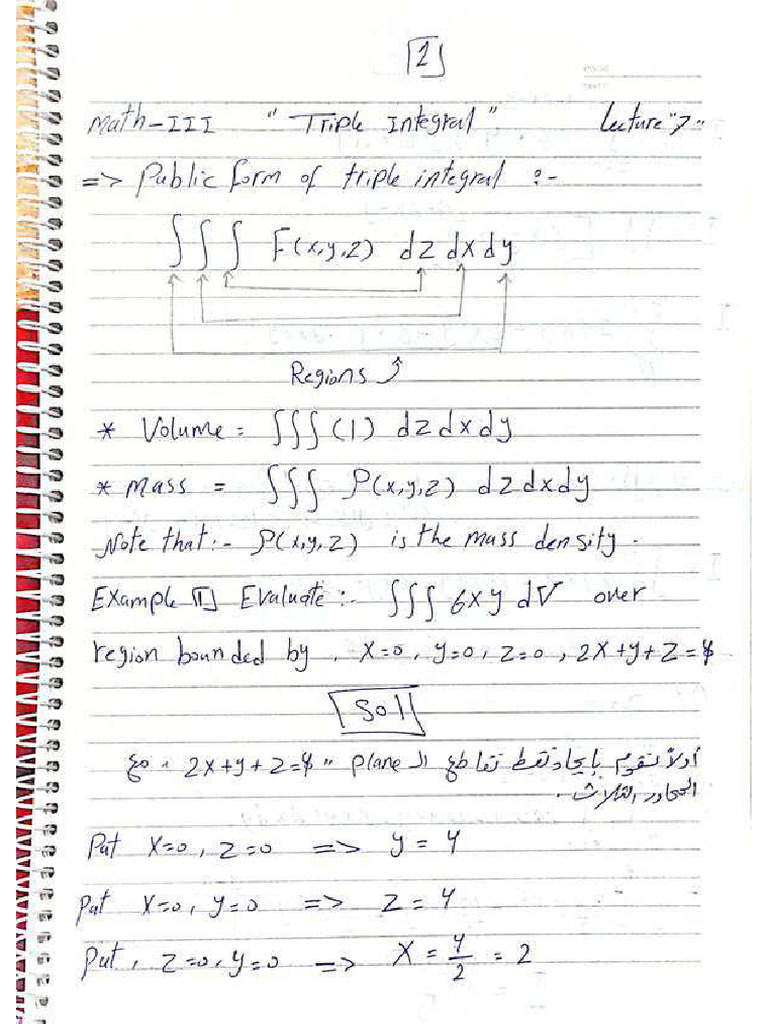 [2]
Math-III "Triple Integral" Lecture "7"
=> Public form of triple integral :-
∫∫∫ F(x,y,z) dz dx dy
Regions
* Volume = ∫∫∫ (1) dz dx dy
* Mass = ∫∫∫ ρ(x,y,z) dz dx dy
Note that:- ρ(x,y,z) is the mass density.
Example [1] Evaluate:- ∫∫∫ 6xy dV over
region bounded by, x=0, y=0, z=0, 2x+y+z=4
Sol
أولاً نقوم بإيجاد نقط تقاطع الـ plane "2x+y+z=4" مع
المحاور الثلاث.
Put x=0, z=0 => y = 4
Put x=0, y=0 => z = 4
Put, z=0, y=0 => x = 4/2 = 2